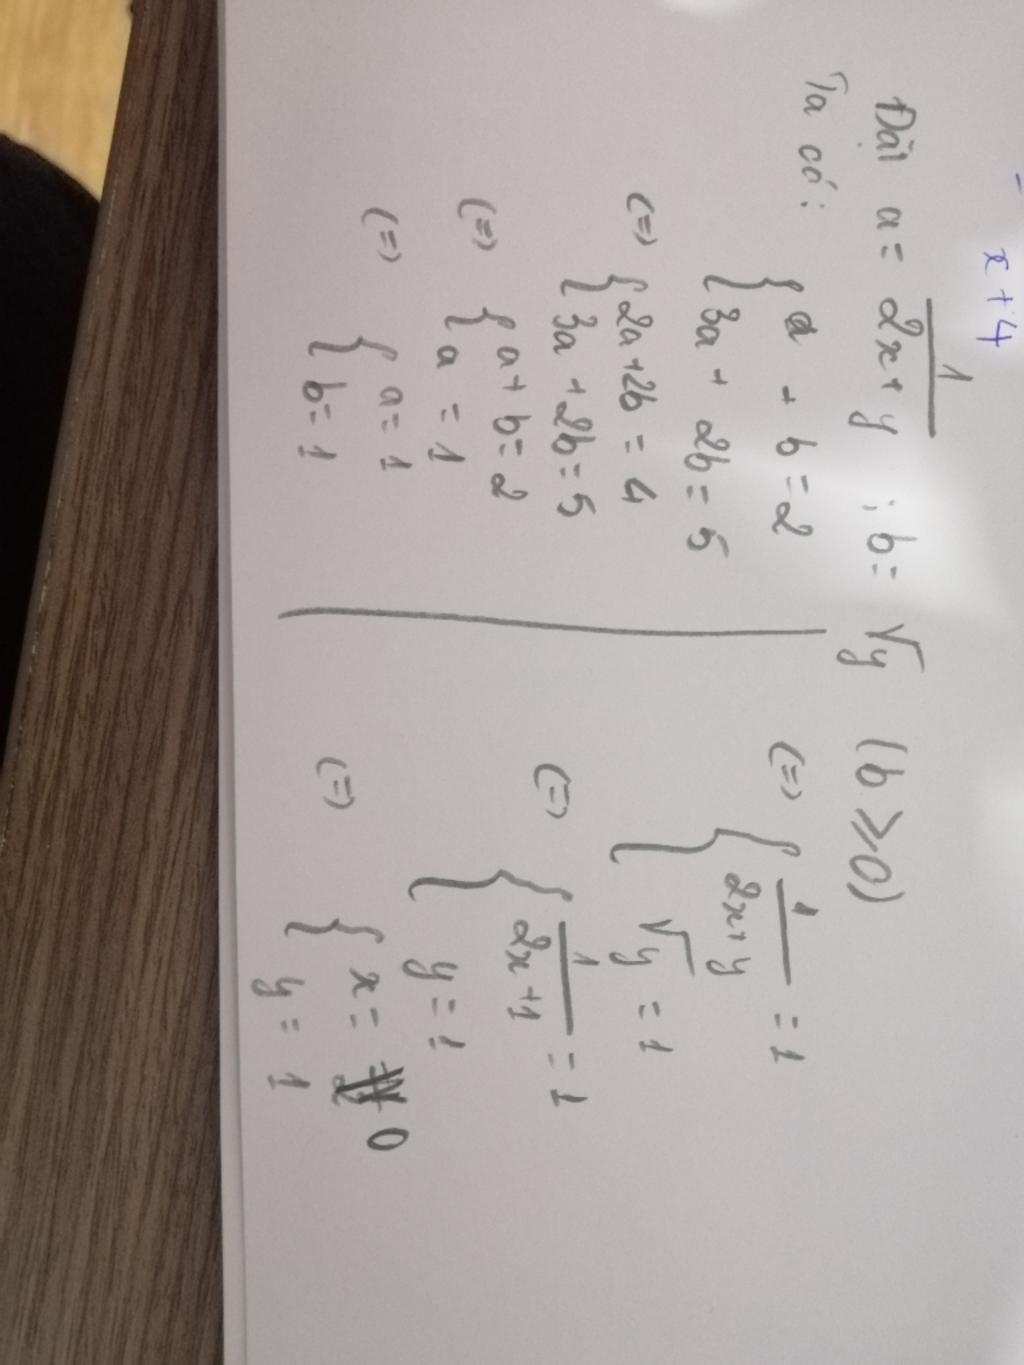 x + 4
Đặt a = 1/(2x+y) ; b = √y (b ≥ 0)
Ta có:
{ a + b = 2
{ 3a + 2b = 5
(=) { 2a+2b = 4
{ 3a + 2b = 5
(=) { a + b = 2
{ a = 1
(=) { a = 1
{ b = 1
(=) { 1/(2x+y) = 1
{ √y = 1
(=) { 1/(2x+1) = 1
{ y = 1
(=) { x = 0
{ y = 1